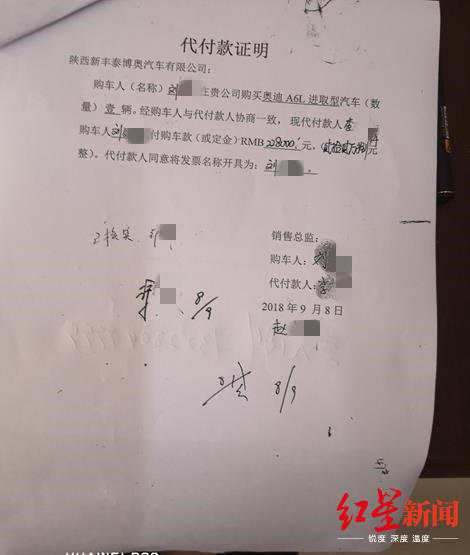 代付款证明
陕西新丰泰博奥汽车有限公司：
购车人（名称）刘 在贵公司购买奥迪 A6L 进取型汽车（数
量）壹 辆。经购车人与代付款人协商一致，现代付款人李
购车人刘 付购车款（或定金）RMB 228000 元，（ 元
整）。代付款人同意将发票名称开具为：刘 。
销售总监：
已核实
购车人：刘
代付款人：李
8/9
2018 年 9 月 8 日
赵
8/9
红星新闻
锐度 深度 温度
HUAWEI